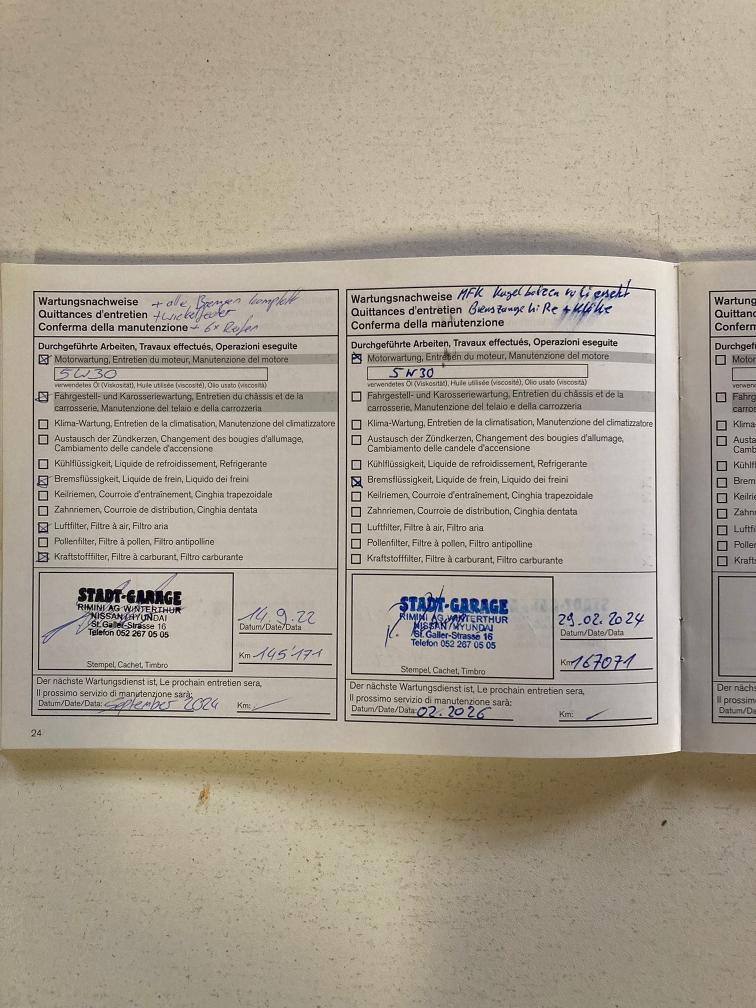 Wartungsnachweise + alle Bremsen komplett
Quittances d'entretien
Conferma della manutenzione + 6x Reifen
Durchgeführte Arbeiten, Travaux effectués, Operazioni eseguite
Motorwartung, Entretien du moteur, Manutenzione del motore
5W30
verwendetes Öl (Viskosität), Huile utilisée (viscosité), Olio usato (viscosità)
Fahrgestell- und Karosseriewartung, Entretien du châssis et de la
carrosserie, Manutenzione del telaio e della carrozzeria
Klima-Wartung, Entretien de la climatisation, Manutenzione del climatizzatore
Austausch der Zündkerzen, Changement des bougies d'allumage,
Cambiamento delle candele d'accensione
Kühlflüssigkeit, Liquide de refroidissement, Refrigerante
Bremsflüssigkeit, Liquide de frein, Liquido dei freini
Keilriemen, Courroie d'entraînement, Cinghia trapezoidale
Zahnriemen, Courroie de distribution, Cinghia dentata
Luftfilter, Filtre à air, Filtro aria
Pollenfilter, Filtre à pollen, Filtro antipolline
Kraftstofffilter, Filtre à carburant, Filtro carburante
STADT-GARAGE
RIMINI AG WINTERTHUR
NISSAN/HYUNDAI
St. Galler-Strasse 16
Telefon 052 267 05 05
Stempel, Cachet, Timbro
14.9.22
Datum/Date/Data
Km 145'171
Der nächste Wartungsdienst ist, Le prochain entretien sera,
Il prossimo servizio di manutenzione sarà:
Datum/Date/Data: September 2024 Km:
24
Wartungsnachweise MFK Kugelbolzen ersetzt
Quittances d'entretien Bremszange hi Re + Klötze
Conferma della manutenzione
Durchgeführte Arbeiten, Travaux effectués, Operazioni eseguite
Motorwartung, Entretien du moteur, Manutenzione del motore
5W30
verwendetes Öl (Viskosität), Huile utilisée (viscosité), Olio usato (viscosità)
Fahrgestell- und Karosseriewartung, Entretien du châssis et de la
carrosserie, Manutenzione del telaio e della carrozzeria
Klima-Wartung, Entretien de la climatisation, Manutenzione del climatizzatore
Austausch der Zündkerzen, Changement des bougies d'allumage,
Cambiamento delle candele d'accensione
Kühlflüssigkeit, Liquide de refroidissement, Refrigerante
Bremsflüssigkeit, Liquide de frein, Liquido dei freini
Keilriemen, Courroie d'entraînement, Cinghia trapezoidale
Zahnriemen, Courroie de distribution, Cinghia dentata
Luftfilter, Filtre à air, Filtro aria
Pollenfilter, Filtre à pollen, Filtro antipolline
Kraftstofffilter, Filtre à carburant, Filtro carburante
STADT-GARAGE
RIMINI AG WINTERTHUR
NISSAN/HYUNDAI
St. Galler-Strasse 16
Telefon 052 267 05 05
Stempel, Cachet, Timbro
29.02.2024
Datum/Date/Data
Km 167071
Der nächste Wartungsdienst ist, Le prochain entretien sera,
Il prossimo servizio di manutenzione sarà:
Datum/Date/Data: 02.2026 Km: